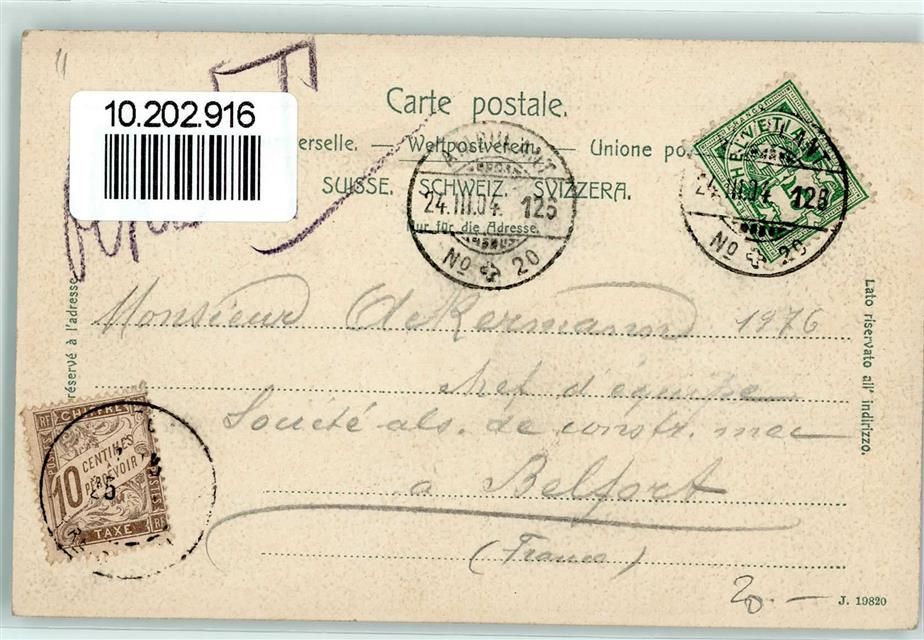 T
10.202.916
Carte postale.
erselle. — Weltpostverein. — Unione po
SUISSE. SCHWEIZ. SVIZZERA.
Nur für die Adresse.
AMBULANT
24.III.04. 125
No 20
HELVETIA
AMBULANT
24.III.04 128
No 20
réservé à l'adresse
Lato riservato all' indirizzo.
Monsieur Ackermann 1976
chef d'équipe
Société als. de constr. mec
à Belfort
(France)
RF CHIFFRE
POSTES
10 CENTIMES
À
PERCEVOIR
TAXE RF
25
20.—
J. 19820